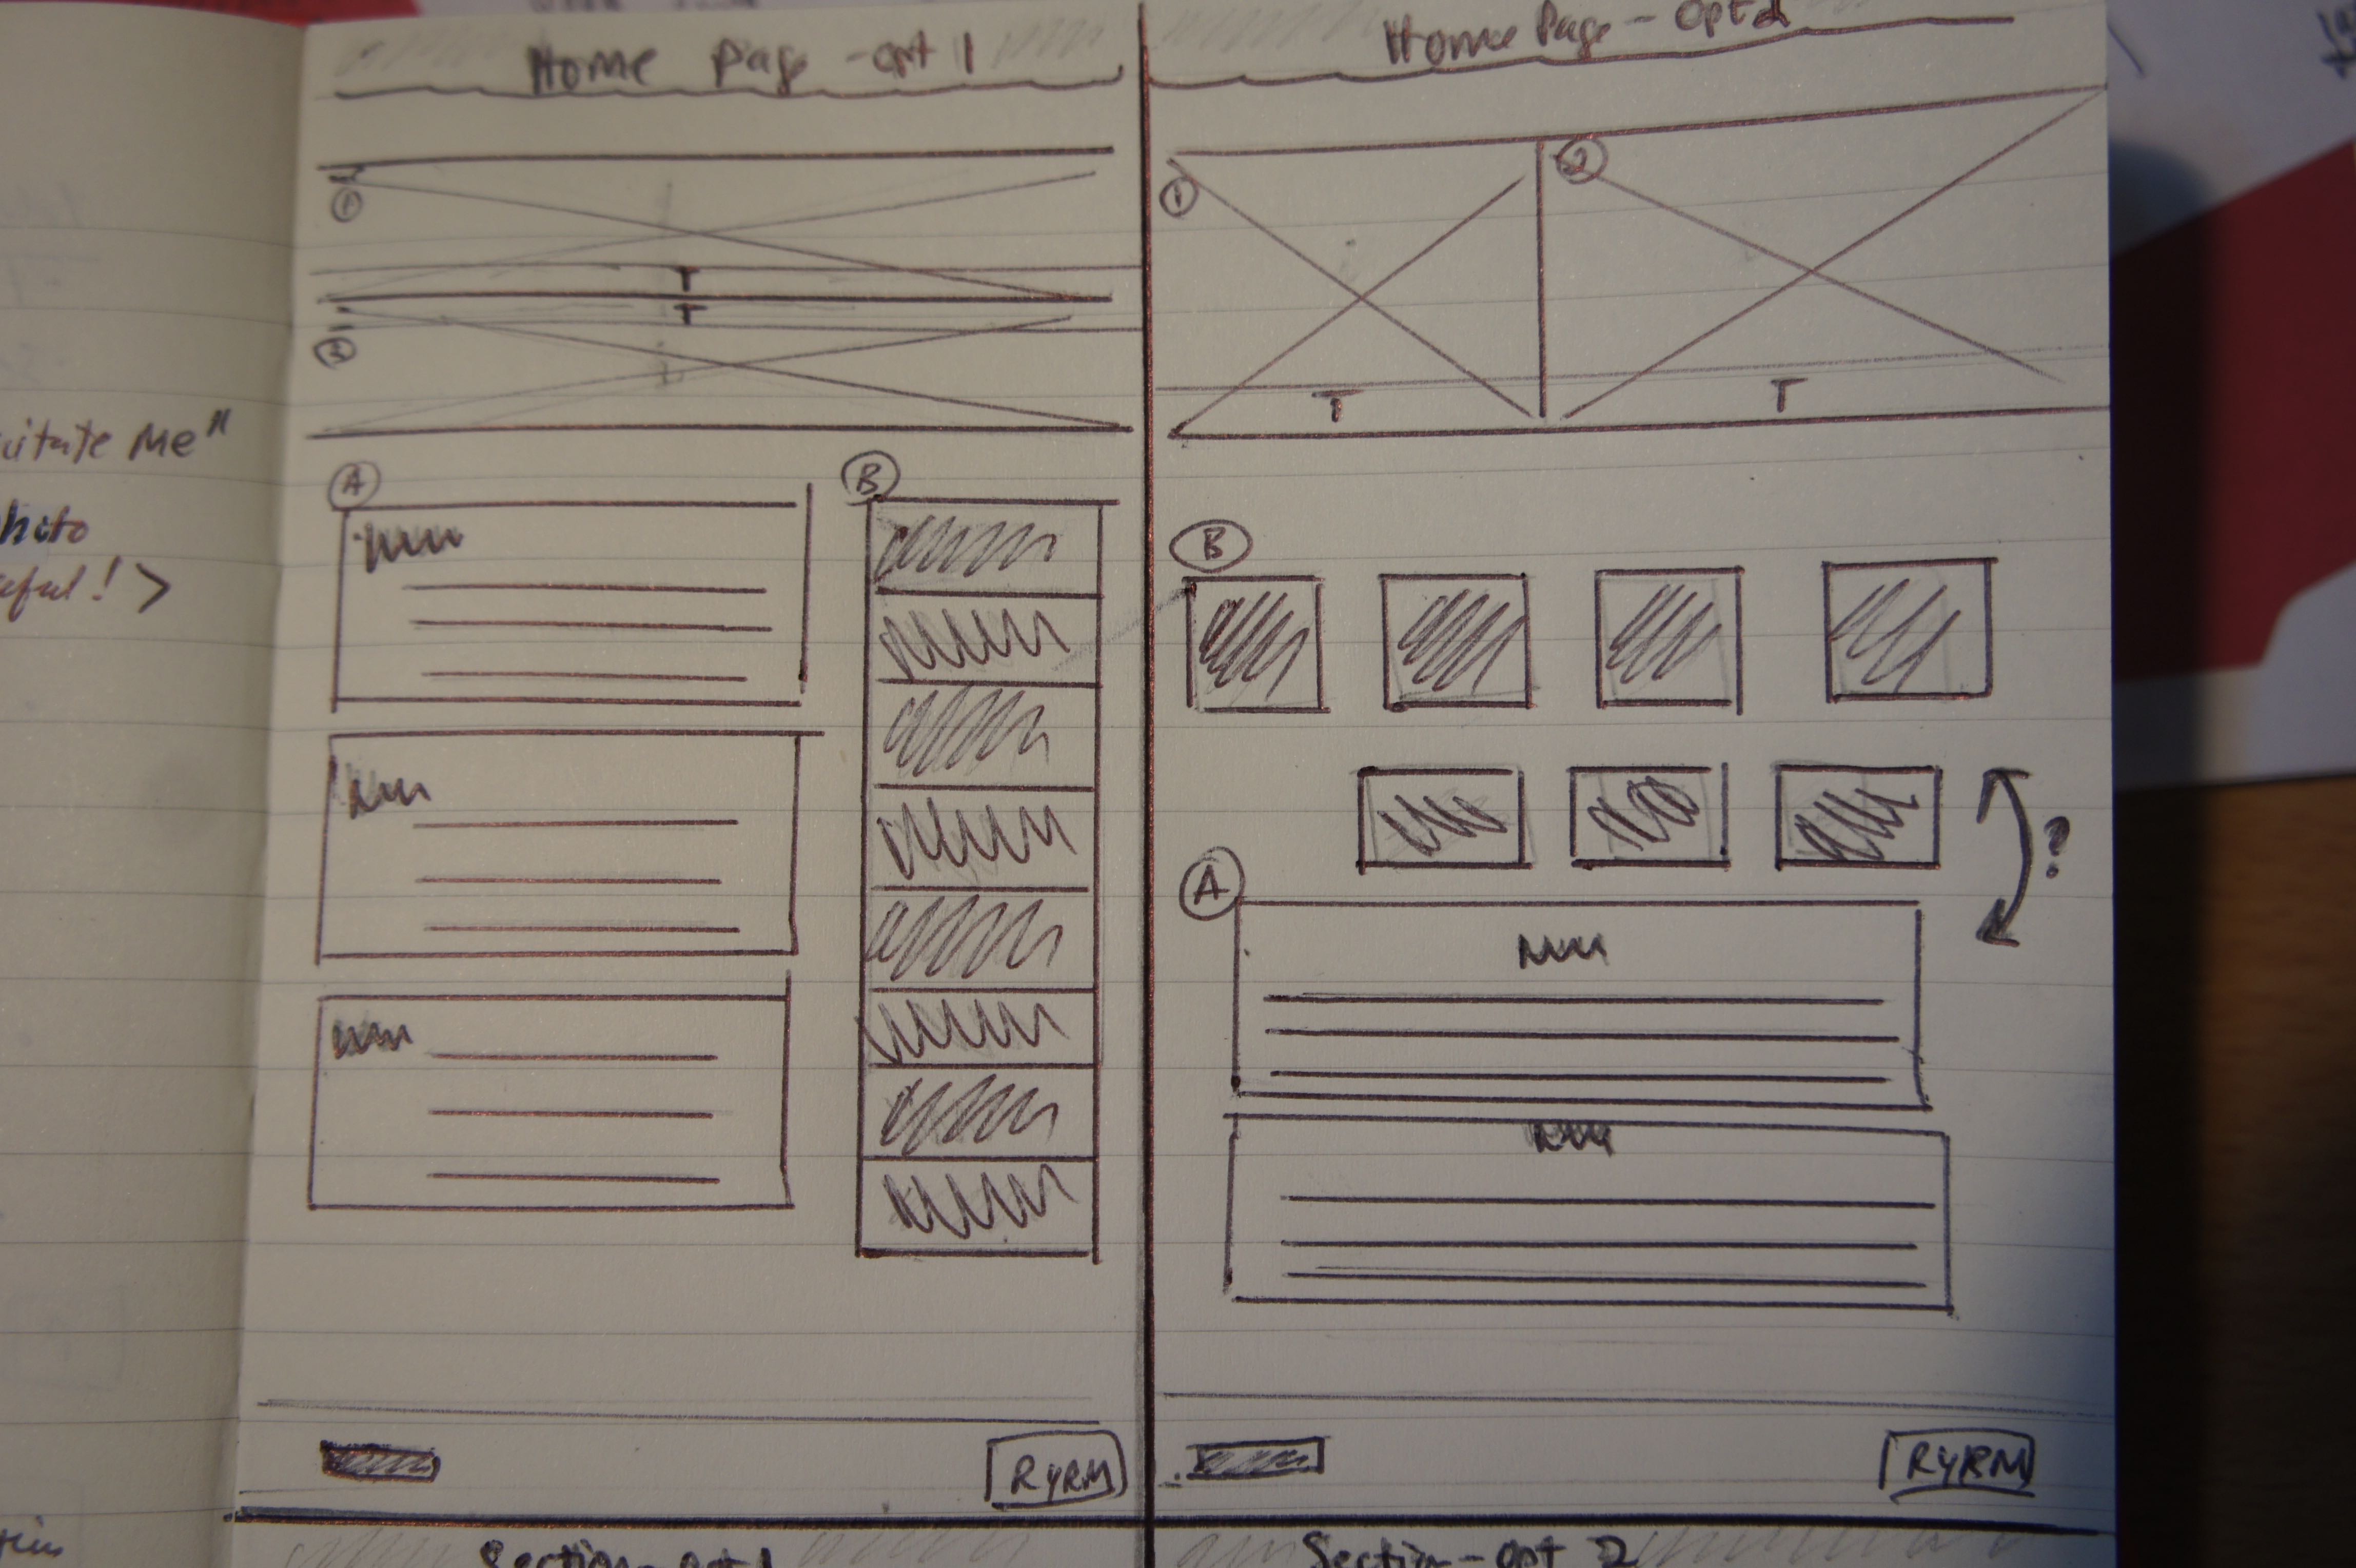 Me"
!>
Home Page - opt 1
1
T
T
2
A
B
RYRM
Section - opt 1
Home Page - opt 2
1
2
T
T
B
?
A
RYRM
Section - opt 2